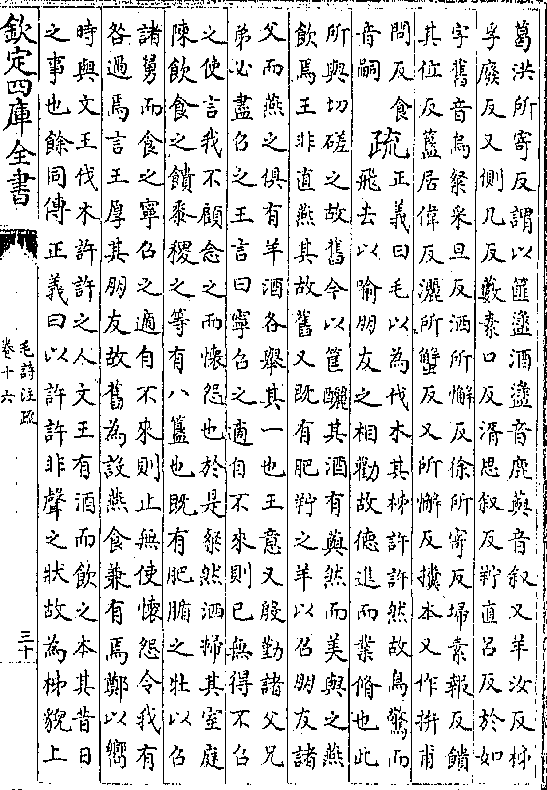 葛洪所寄反謂以篚盝酒盝音鹿藇音叙又羊汝反柹
孚廢反又側几反藪素口反湑思叙反羜直呂反於如
字舊音烏粲采旦反洒所懈反徐所寄反埽素報反饋
其位反簋居偉反灑所蟹反又所懈反㩴本又作拚甫
問反食
音嗣
疏
正義曰毛以為伐木其柹許許然故鳥驚而
飛去以喻朋友之相勸故德進而業脩也此
所與切磋之故舊今以筐釃其酒有藇然而美與之燕
飲焉王非直燕其故舊又既有肥羜之羊以召朋友諸
父而燕之俱有羊酒各舉其一也王意又殷勤諸父兄
弟必盡召之王言曰寧召之適自不來則已無得不召
之使言我不顧念之而懷怨也於是粲然洒埽其室庭
陳飲食之饋黍稷之等有八簋也既有肥腯之牡以召
諸舅而食之寧召之適自不來則止無使懷怨令我有
咎過焉言王厚其朋友故舊為設燕食兼有焉鄭以嚮
時與文王伐木許許之人文王有酒而飲之本其昔日
之事也餘同傳正義曰以許許非聲之狀故為柹貌上
欽定四庫全書
毛詩注疏
卷十六
三十